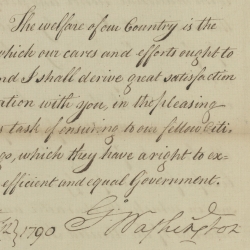 The welfare of our Country is the
which our cares and efforts ought to
nd I shall derive great satisfaction
ation with you, in the pleasing
task of ensuring to our fellow Citi-
gs, which they have a right to ex-
efficient and equal Government.
1790
G. Washington